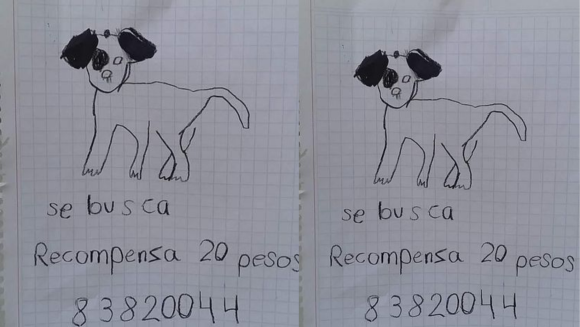 se busca
Recompensa 20 pesos
83820044
se busca
Recompensa 20 pesos
83820044